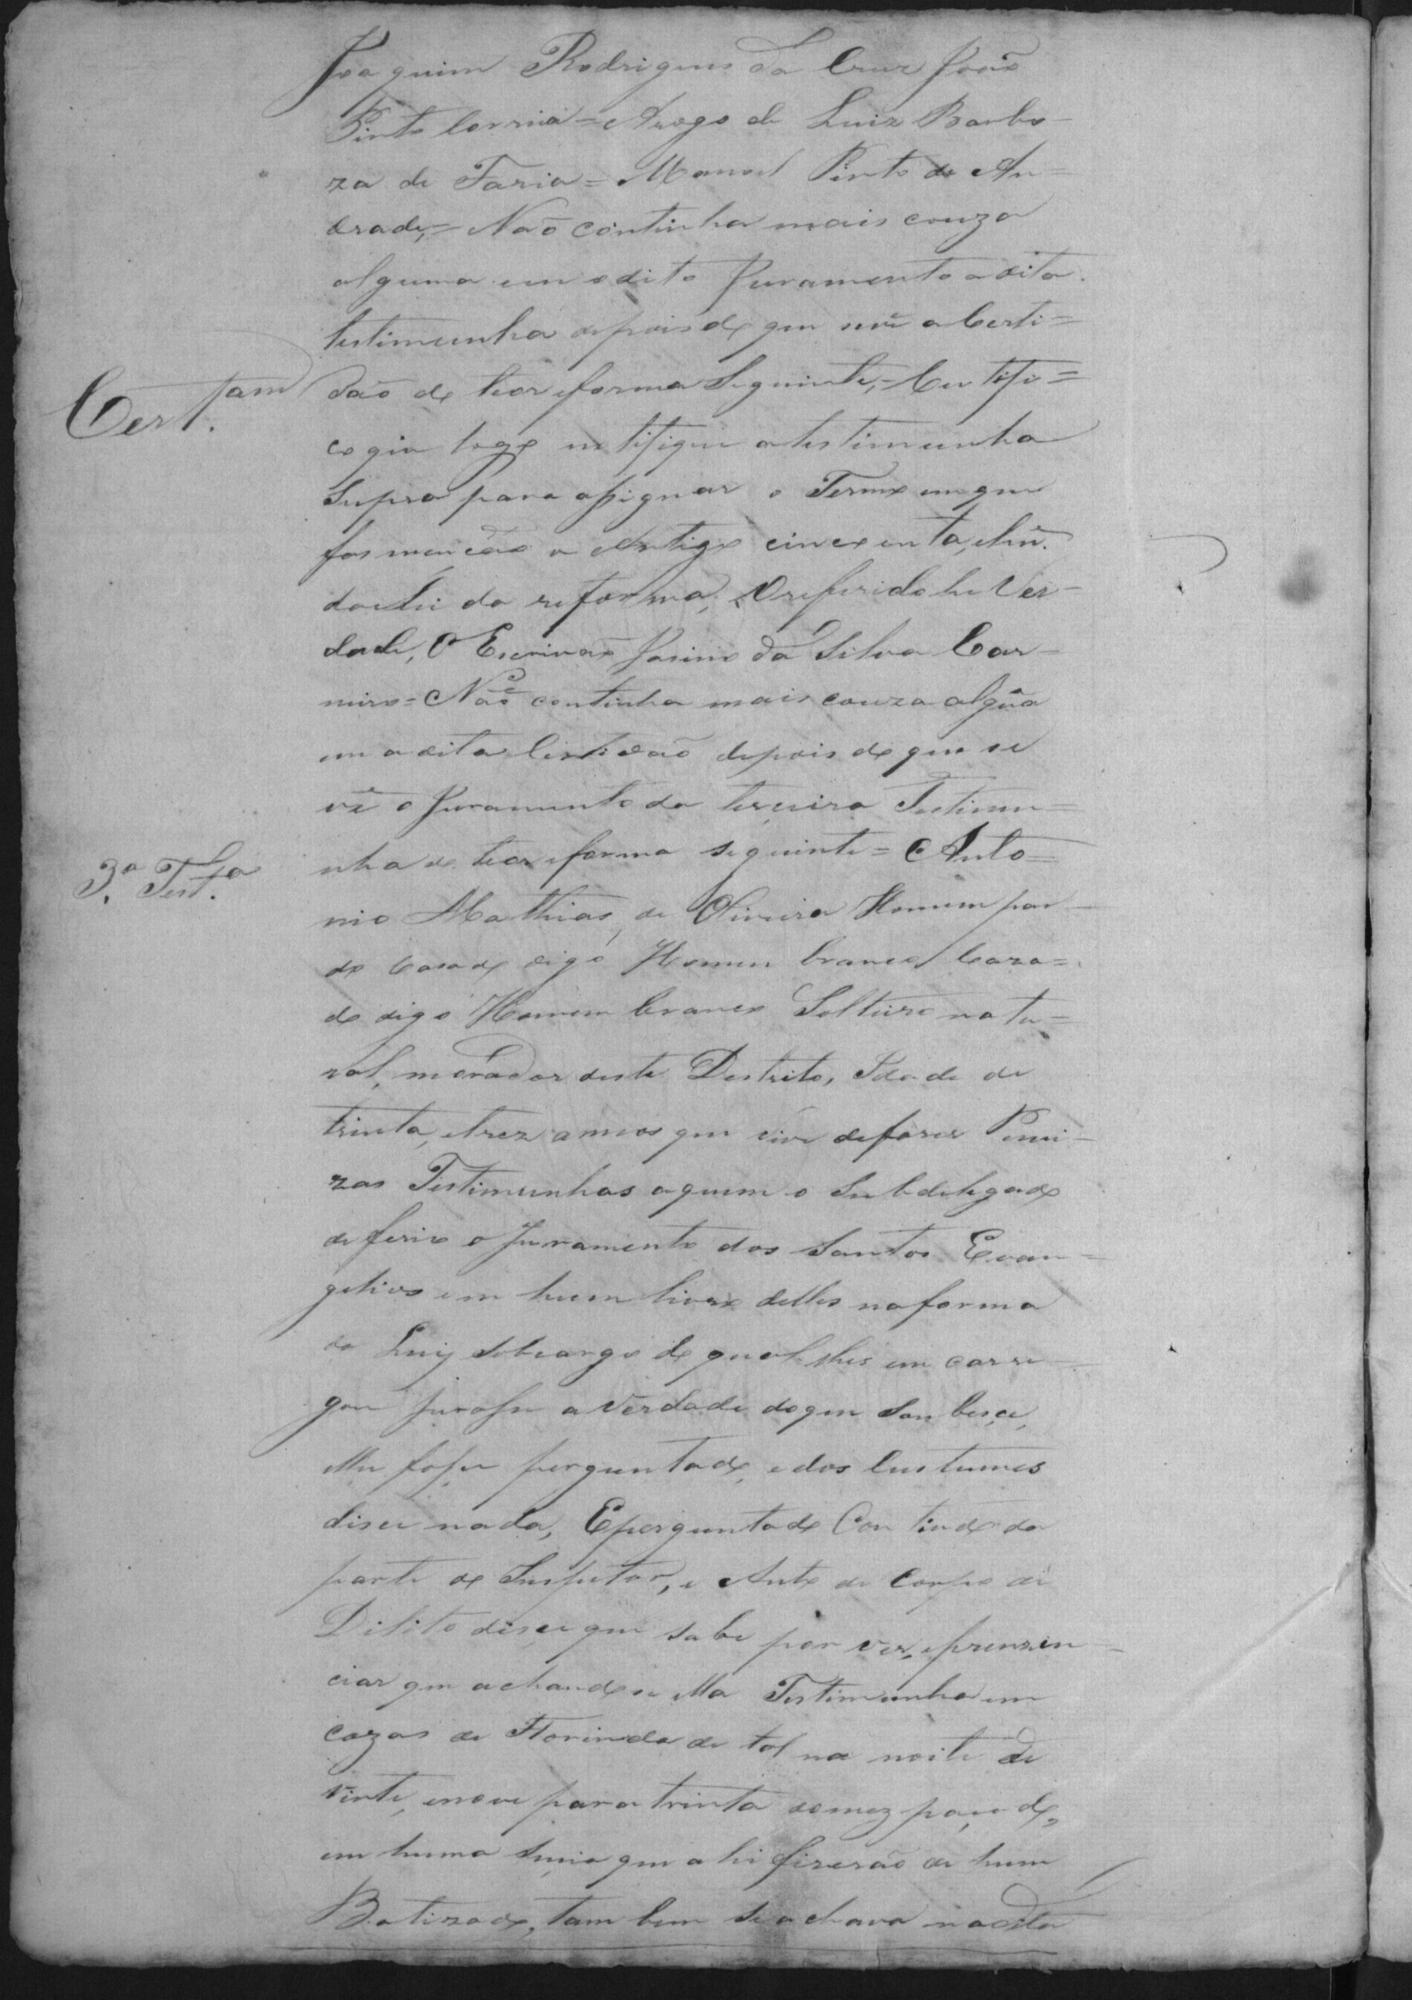 Joaquim Rodrigues da Cruz João
Pinto Correia = Arogo de Luiz Barbo-
za de Faria = Manoel Pinto de An=
drade, = Não continha mais couza
alguma em o dito Juramento a dita
testimunha depois do que se vê a Certi=
Cert.tam
dão do teor e forma Seguinte, = Certifi=
co que logo notifiquei a testimunha
Supra para assignar o Termo em que
faz menção o Artigo cincoenta, e hũ
da Lei da reforma, O referido he Ver-
dade, O Escrivão Josino da Silva Car-
neiro = Não continha mais couza algũa
em a dita Certidão depois do que se
vê o Juramento da terceira Testimu=
3.a Test.a
nha do teor e forma seguinte = Anto=
nio Mathias de Oliveira Homem par-
do Casado digo Homem branco Caza=
do digo Homem branco Solteiro natu=
ral, morador deste Destrito, Idade de
trinta, e trez annos que vive de fazer Penei-
ras Testimunhas aquem o Subdelegado
deferio o Juramento dos Santos Evan=
gelios em hum livro delles na forma
da Lei sobcargo do qual lhes em carre-
gou jurasse a Verdade do que soubesse,
e lhe fosse perguntado, e dos Custumes
disce nada, E perguntado Con tiudo da
parte do Inspetor, e Auto de Corpo de
Delito disce que sabe por ver, e prezen-
ciar que achandose ella Testimunha em
cazas de Florinda de tal na noite de
vinte, e nove para trinta do mez paçado,
em huma Sucia que ahi fizerão de hum
Batizado, tam bem se achava na dita